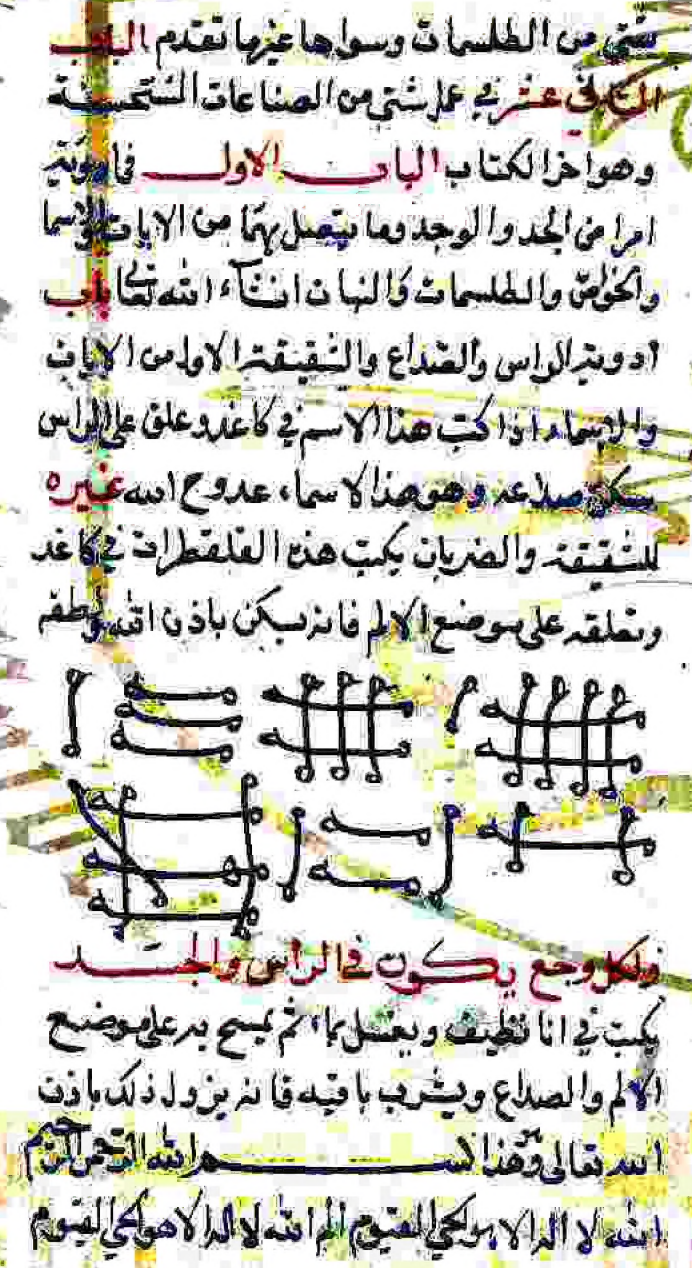 شتى من الطلسمات وسواها غيرها تقدم الباب
الثاني عشر في عمل شتى من الصناعات المستحسنة
وهو اخر الكتاب الباب الاول في ادوية
امراض الجسد وما يتصل بهما من الايات والاسما
والخواص والطلسمات والنبات انشاء الله تعالى باب
ادوية الراس والصداع والشقيقة الاول من الايات
والاسماء اذا كتب هذا الاسم في كاغد وعلق على الراس
يسكن صداعه وهو هذا الاسماء عدوح الله غيره
للشقيقة والضربان يكتب هذه القلقطرات في كاغد
وتعلقه على موضع الالم فانه يسكن باذن الله ولطفه
ولكل وجع يكون في الراس والجسد
يكتب في انا نظيف ويغسل بماء ثم يمسح به على موضع
الالم والصداع ويشرب باقيه فانه يزول ذلك باذن
الله تعالى وهو هذا بسم الله الرحمن الرحيم
الله لا اله الا هو الحي القيوم الم الله لا اله الا هو الحي القيوم